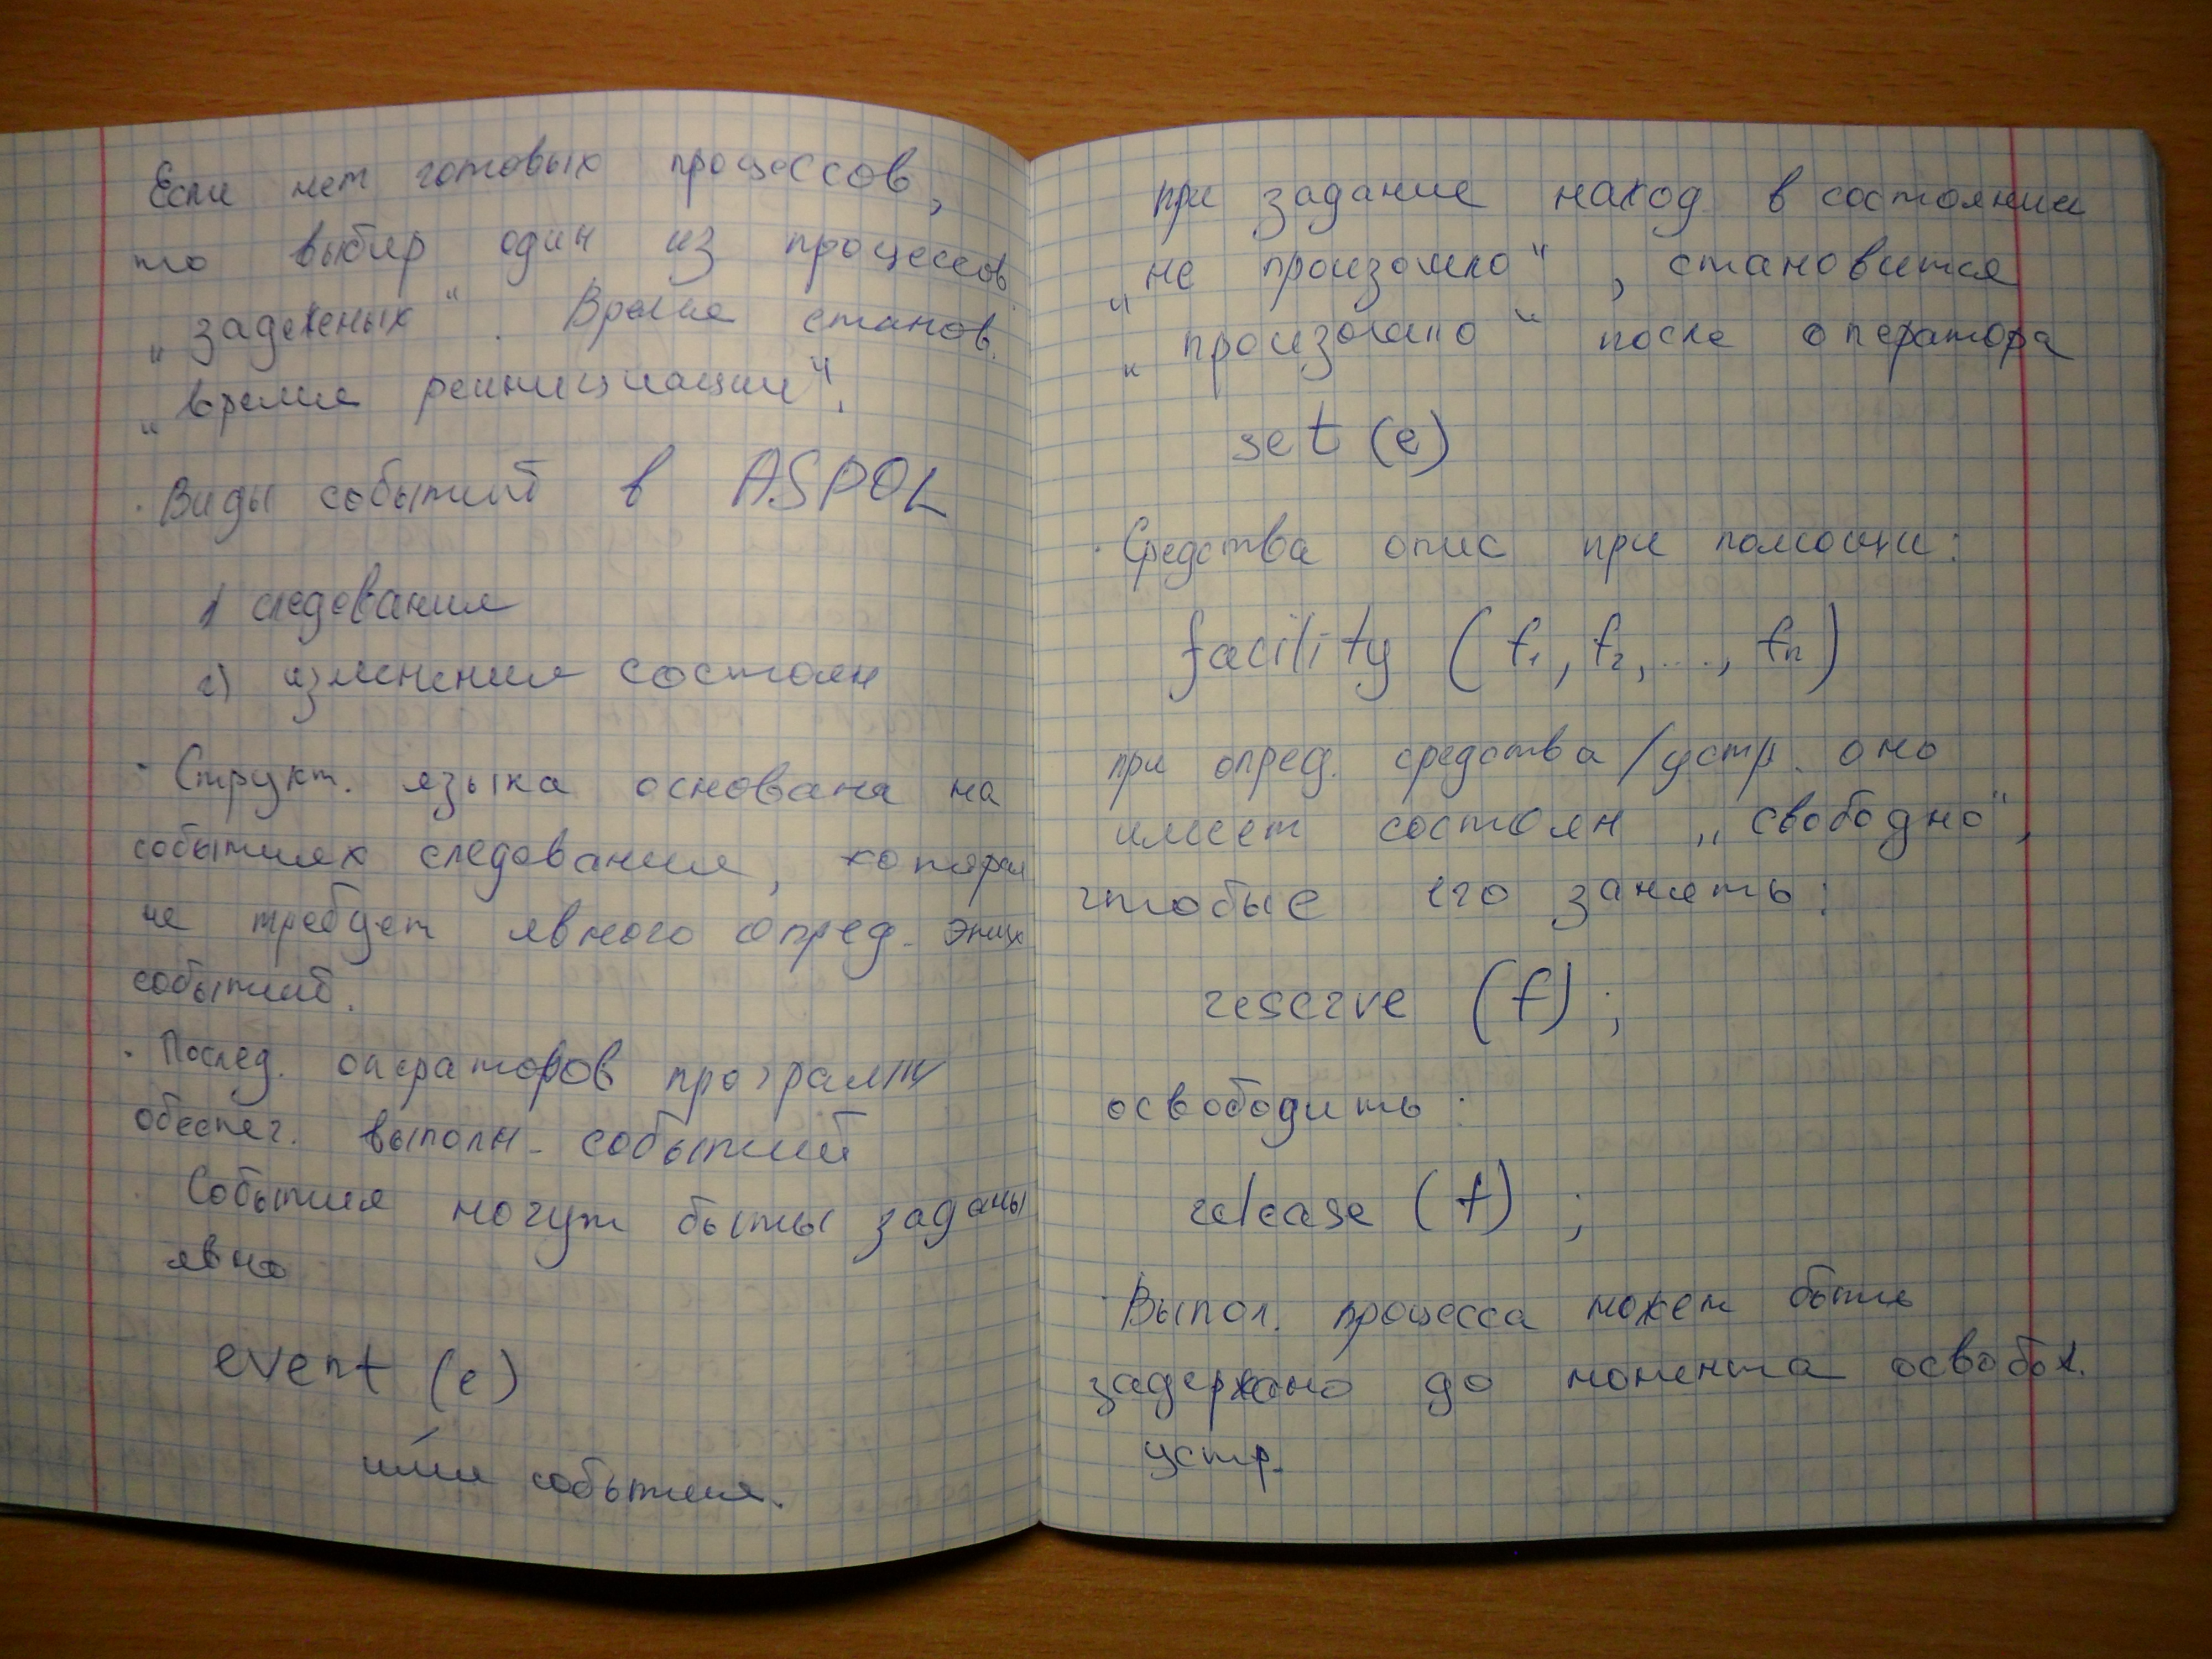 Если нет готовых процессов,
то выбир один из процессов
„задежных“. Время станов.
„время реинициации“.
· Виды событий в ASPOL
1) следования
2) изменения состоян
· Структ. языка основана на
событиях следования, которая
не требует явного опред. этих
событий.
· Послед. операторов программ
обеспеч. выполн. событий
· События могут быть заданы
явно
event (e)
имя события.
при задание наход в состоянии
„не произошло“, становится
„произошло“ после оператора
set (e)
· Средства опис при помощи:
facility (f1, f2, ..., fn)
при опред. средства/устр. оно
имеет состоян „свободно“,
чтобы его занять:
reserve (f);
освободить:
release (f);
· Выпол. процесса может быть
задержано до момента освобож.
устр.